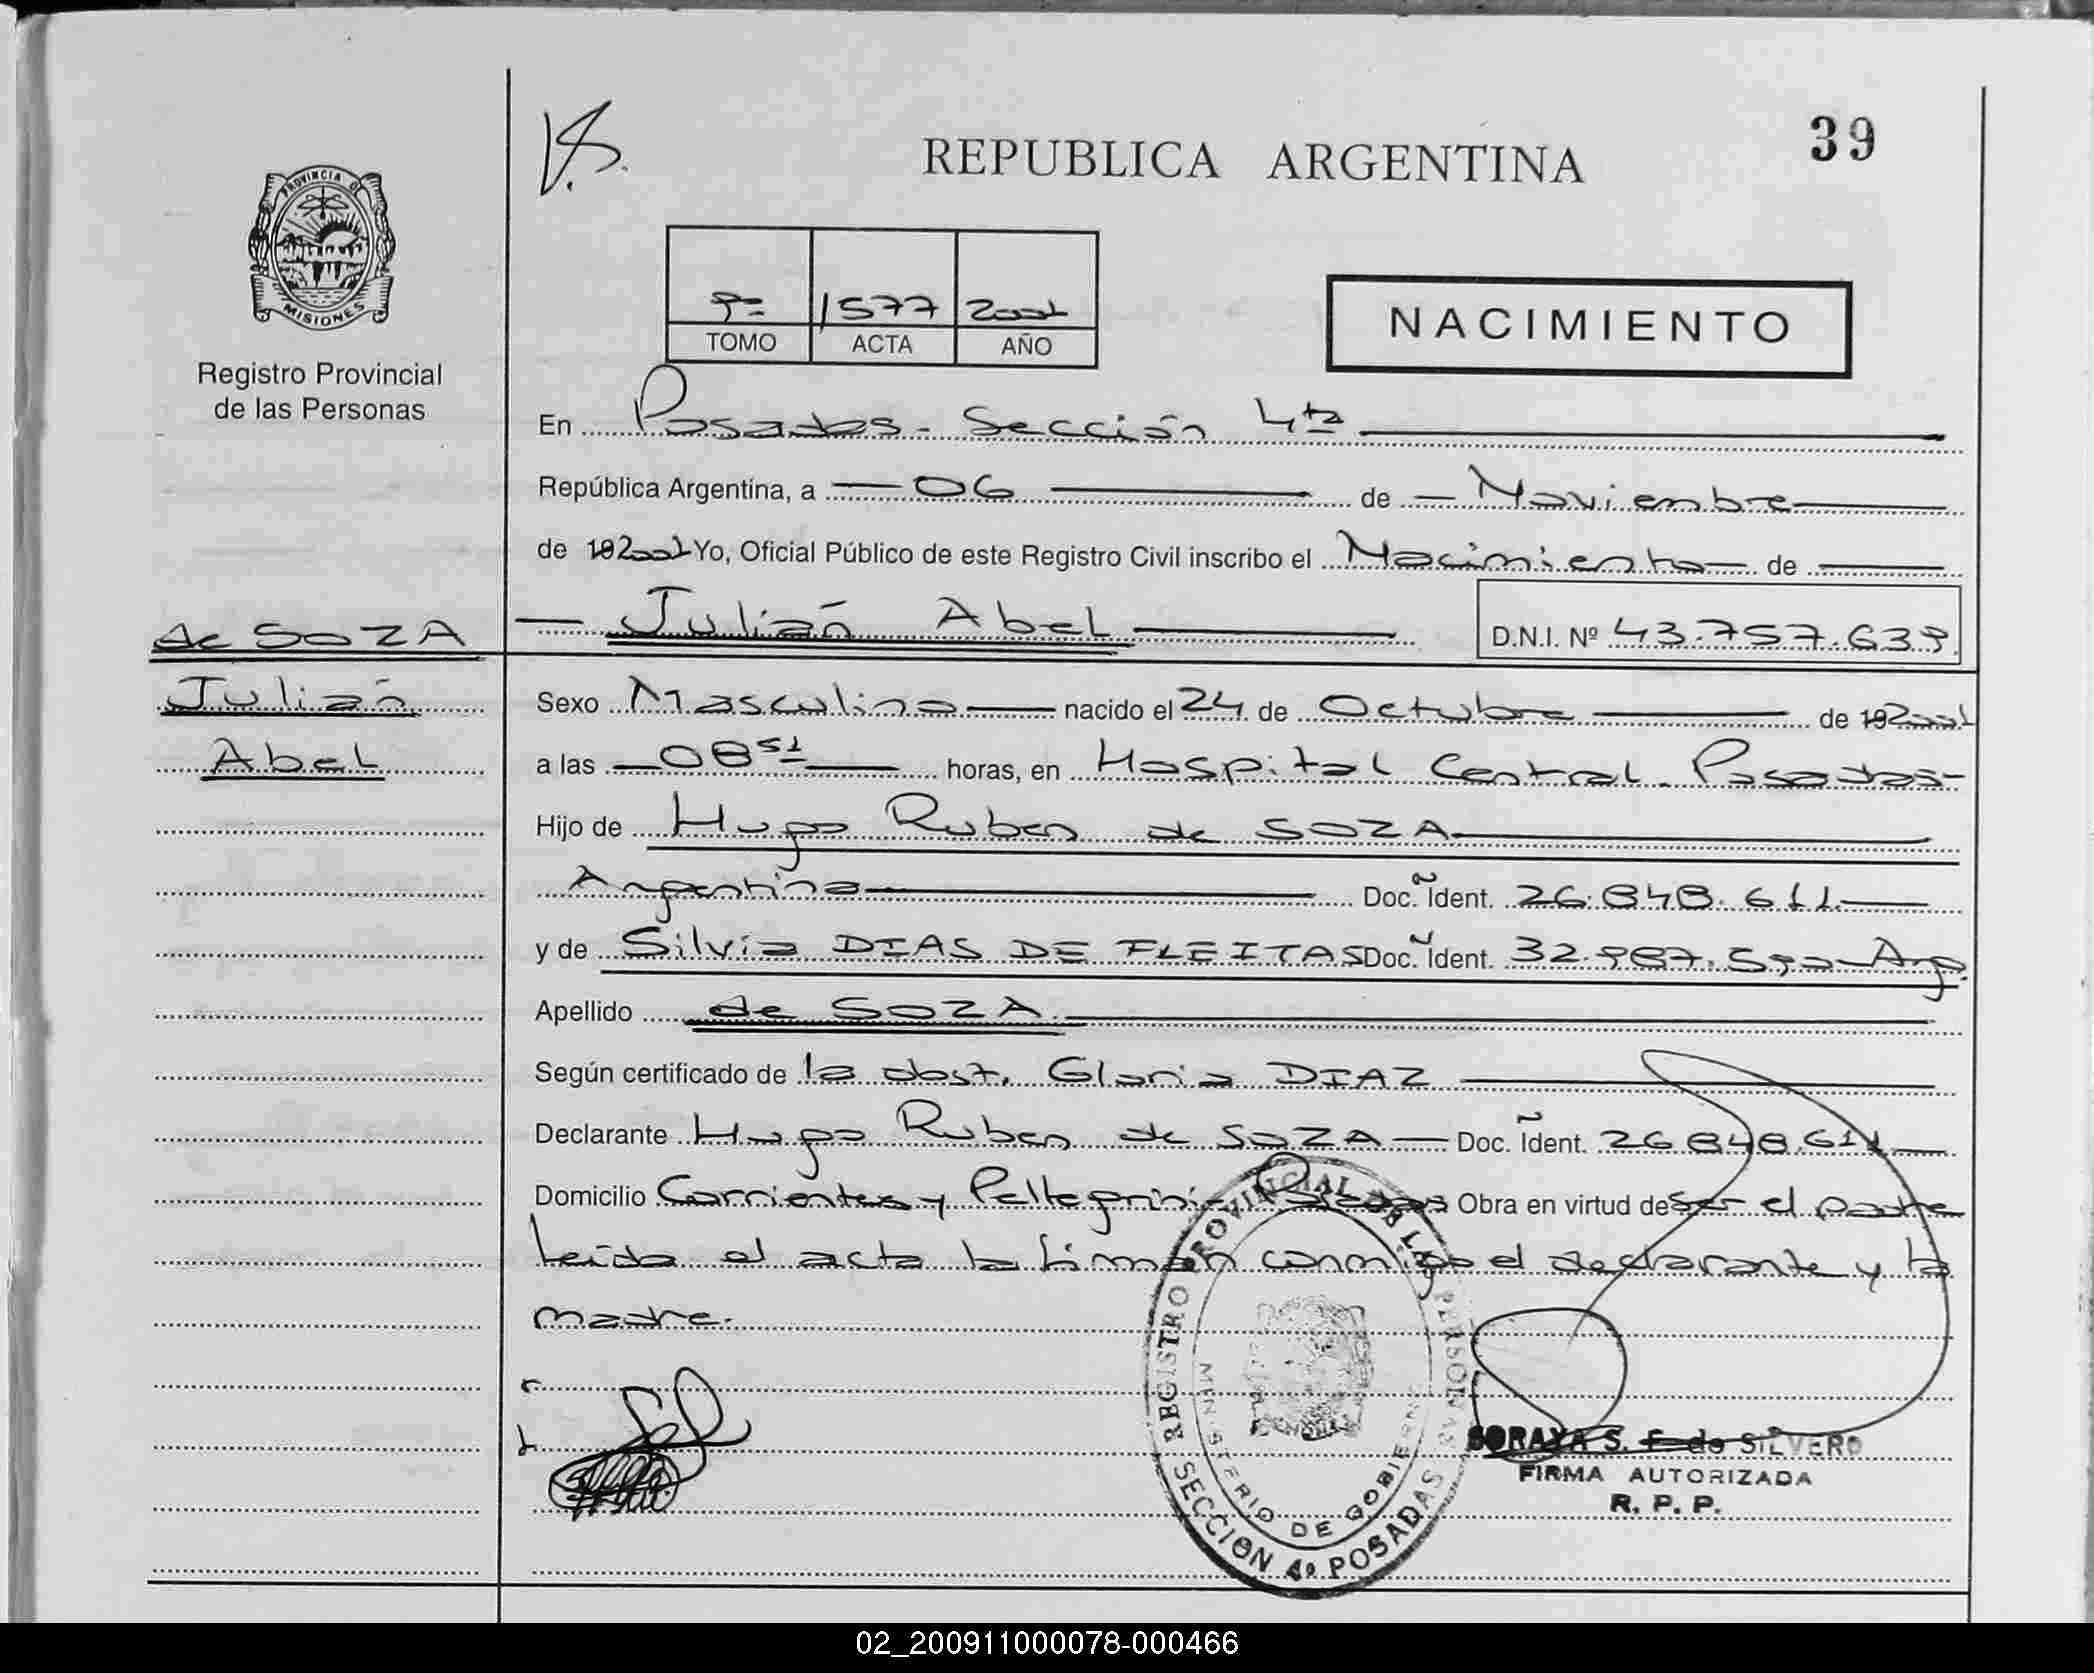 39
REPUBLICA ARGENTINA
PROVINCIA DE
MISIONES
Registro Provincial
de las Personas
1577 2001
TOMO ACTA AÑO
NACIMIENTO
En Posadas - Sección 4ta
República Argentina, a 06 de Noviembre
de 192001 Yo, Oficial Público de este Registro Civil inscribo el Nacimiento de
de SOZA
Julián Abel
D.N.I. Nº 43.757.639
Julián
Abel
Sexo Masculino nacido el 24 de Octubre de 192001
a las 08 51 horas, en Hospital Central - Posadas-
Hijo de Hugo Ruben de SOZA
Argentina Doc. Ident. 26.848.611
y de Silvia DIAS DE FLEITAS Doc. Ident. 32.987.590 - Arg.
Apellido de SOZA
Según certificado de la obst. Gloria DIAZ
Declarante Hugo Ruben de SOZA Doc. Ident. 26.848.611
Domicilio Corrientes y Pellegrini - Posadas Obra en virtud de ser el padre
leida el acta la firman conmigo el declarante y la
madre.
REGISTRO PROVINCIAL DE LAS PERSONAS
MINISTERIO DE GOBIERNO
SECCION 4º POSADAS
SORAYA S. F. de SILVERO
FIRMA AUTORIZADA
R. P. P.
02_200911000078-000466